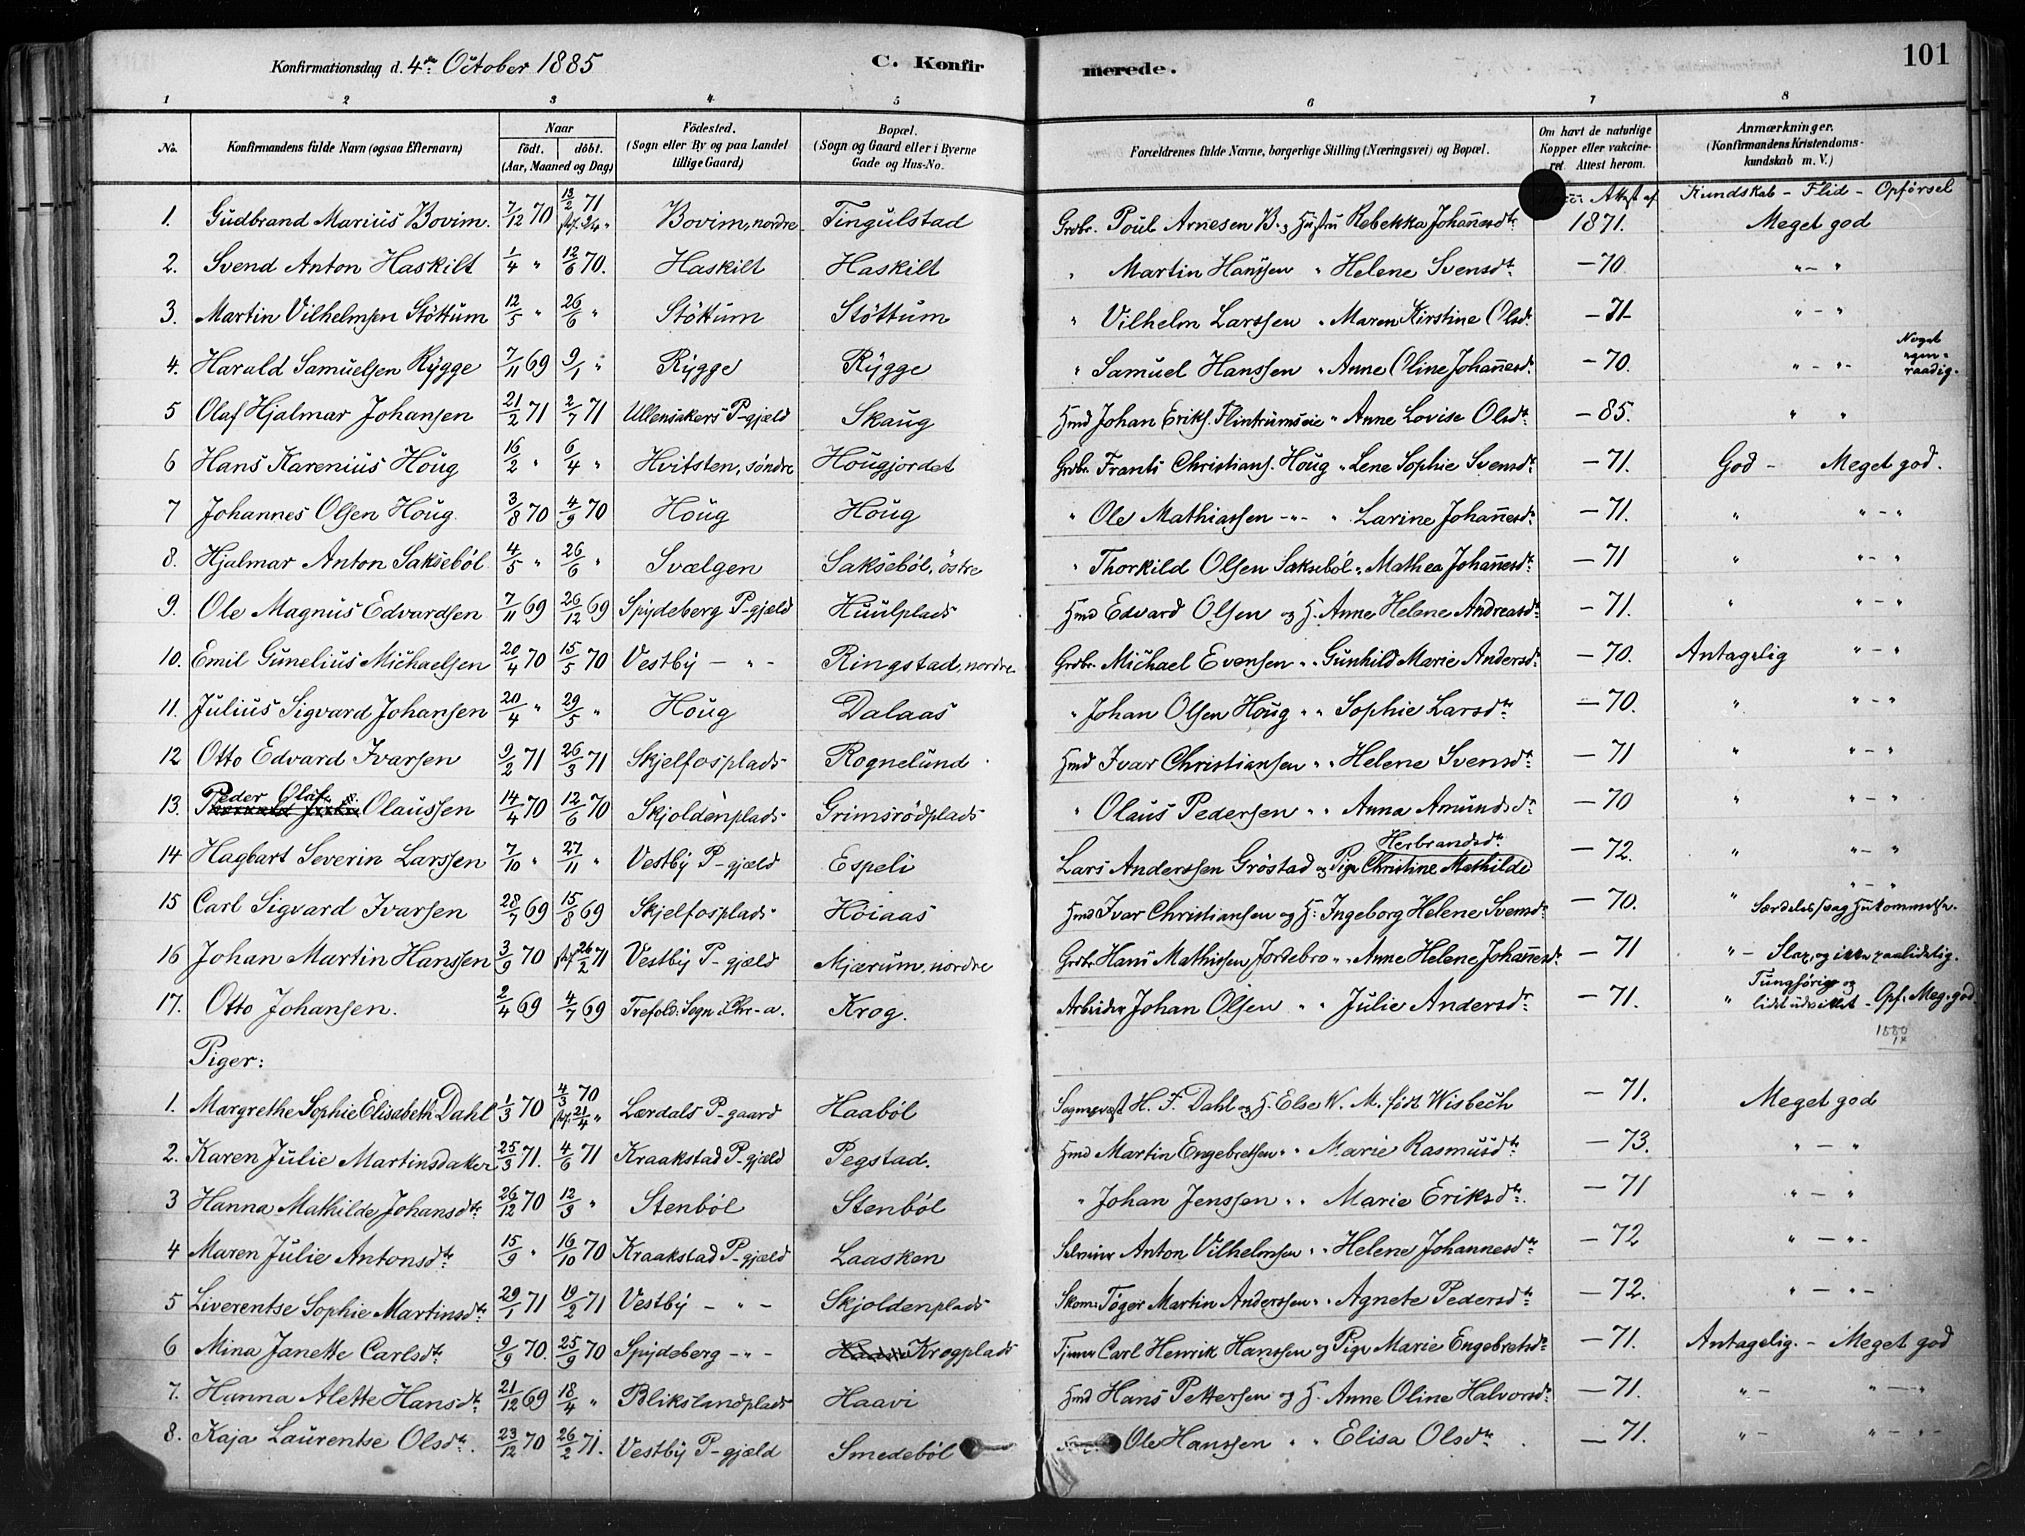 Konfirmationsdag d. 4de October 1885 C. Konfirmerede. 101
1 2 3 4 5 6 7 8
No. Konfirmandens fulde Navn (ogsaa Efternavn) Naar födt. döbt. (Aar, Maaned og Dag) Födested. (Sogn eller By og paa Landet tillige Gaard) Bopæl. (Sogn og Gaard eller i Byerne Gade og Hus-No. Forældrenes fulde Navne, borgerlige Stilling (Næringsvei) og Bopæl. Om havt de naturlige Kopper eller vakcineret. Attest herom. Anmærkninger. (Konfirmandens Kristendomskundskab m. V.)
Attest af Kundskab - Flid - Opførsel
1. Gudbrand Marius Bovim. 7/12 70 13/2 71 Bovim, nordre Tingulstad Grdbr. Poul Arnesen B. og Hustru Rebekka Johannesdtr 1871. Meget god
2. Svend Anton Haskilt 1/4 " 12/6 70. Haskilt Haskilt " Martin Hanssen " Helene Svensdtr - 70 " - "
3. Martin Vilhelmsen Støttum 12/5 " 26/6 " Støttum Støttum " Vilhelm Larssen " Maren Kirstine Olsdr. - 71 - " - "
4. Harald Samuelsen Rygge 7/11 69 9/1 " Rygge Rygge " Samuel Hanssen " Anne Oline Johannesdr. - 70. " - " - Noget egenraadig.
5 Olaf Hjalmar Johansen 21/2 71 2/7 71 Ullensakers P-gjæld Skaug Hmd Johan Eriks. Flintrumseie " Anne Lovise Olsdtr - 85. " "
6 Hans Karenius Houg 16/2 " 6/4 " Hvitsten, søndre Hougjordet Grdbr. Frants Christians. Houg " Lene Sophie Svensdtr - 71. God - Meget god.
7 Johannes Olsen Houg. 3/8 70 4/9 70 Houg Houg " Ole Mathiassen - " - " Larine Johannesdr. - 71. " " - "
8. Hjalmar Anton Saksebøl 4/5 " 26/6 " Svælgen Saksebøl, østre " Thorkild Olsen Saksebøl " Mathea Johannesdtr - 71 " " - "
9. Ole Magnus Edvardsen 7/11 69 26/12 69 Spydeberg P-gjæld Huulplads Hmd Edvard Olsen og H. Anne Helene Andreasdtr - 71. " " - "
10. Emil Gunelius Michaelsen 20/4 70 15/5 70 Vestby - " - Ringstad, nordre Grdbr. Michael Evensen " " Gunhild Marie Andersdtr - 70. Antagelig " - "
11. Julius Sigvard Johansen 20/4 " 29/5 " Houg Dalaas " Johan Olsen Houg " " Sophie Larsdtr - 70. " " - "
12 Otto Edvard Ivarsen 9/2 71 26/3 71 Skjelfosplads Rognelund Hmd Ivar Christiansen " " Helene Svensdtr - 71 " " - "
13. Peder Olaf Olaussen 14/4 70 12/6 70 Skjoldenplads Grimsrødplads " Olaus Pedersen " " Anna Amundsdtr - 70 " " - "
14 Hagbart Severin Larssen 7/10 " 27/11 " Vestby P-gjæld Espeli Lars Anderssen Grøstad og Pige Christine Mathilde Herbrandsdtr - 72. " " - "
15 Carl Sigvard Ivarsen 28/7 69 15/8 69 Skjelfosplads Høiaas Hmd Ivar Christiansen og H. Ingeborg Helene Svensdtr - 70. " " - " Særdeles svag Hukommelse.
16 Johan Martin Hanssen 3/9 70 26/2 71 Vestby P-gjæld Mjærum, nordre Grdbr. Hans Mathissen Jordebro " " Anne Helene Johannesdr. - 71 " - Sløv, og ikke paalidelig.
17. Otto Johansen. 2/4 69 4/7 69 Trefold. Sogn i Chr-a. Krog. Arbeider Johan Olsen " " Julie Andersdtr - 71. " Tunghørig og lidt udviklet - Opf. Meg. god.
Piger:
1. Margrethe Sophie Elisabeth Dahl 1/3 70 4/3 70 21/4 " Lærdals P-gaard Haabøl Sognepræst H. F. Dahl og H. Else W. M. født Wisbech - 71. Meget god
2. Karen Julie Martinsdaker 25/3 71. 4/6 71 Kraakstad P-gjæld Pegstad. Hmd Martin Engebretsen " " Marie Rasmusdtr - 73. " - "
3 Hanna Mathilde Johansdtr 26/12 70 12/3 " Stenbøl Stenbøl " Johan Jenssen " " Marie Eriksdtr. - 71 " - "
4 Maren Julie Antonsdtr 15/9 " 16/10 70 Kraakstad P-gjæld Laasken Selveier Anton Vilhelmsen " " Helene Johannesdtr - 72 " - " -
5 Liverentse Sophie Martinsdtr 29/1 71 19/2 71 Vestby - " - Skjoldenplads Skom. Tøger Martin Anderssen " " Agnete Pedersdtr - 72. " - " -
6 Mina Janette Carlsdtr 9/9 70. 25/9 70 Spydeberg - " - Krogplads Tjener Carl Henrik Hanssen og Pige Marie Engebretsdtr - 71. Antagelig. - Meget god
7. Hanna Alette Hansdtr 21/12 69 18/4 " Blikslandplads Haavi Hmd Hans Pettersen og H. Anne Oline Halvorsdtr - 71. " - " - "
8. Kaja Laurentse Olsdtr. 23/12 70 26/2 71. Vestby P-gjæld Smedebøl Ole Hanssen " " Elisa Olsdtr - 71. " - " - "